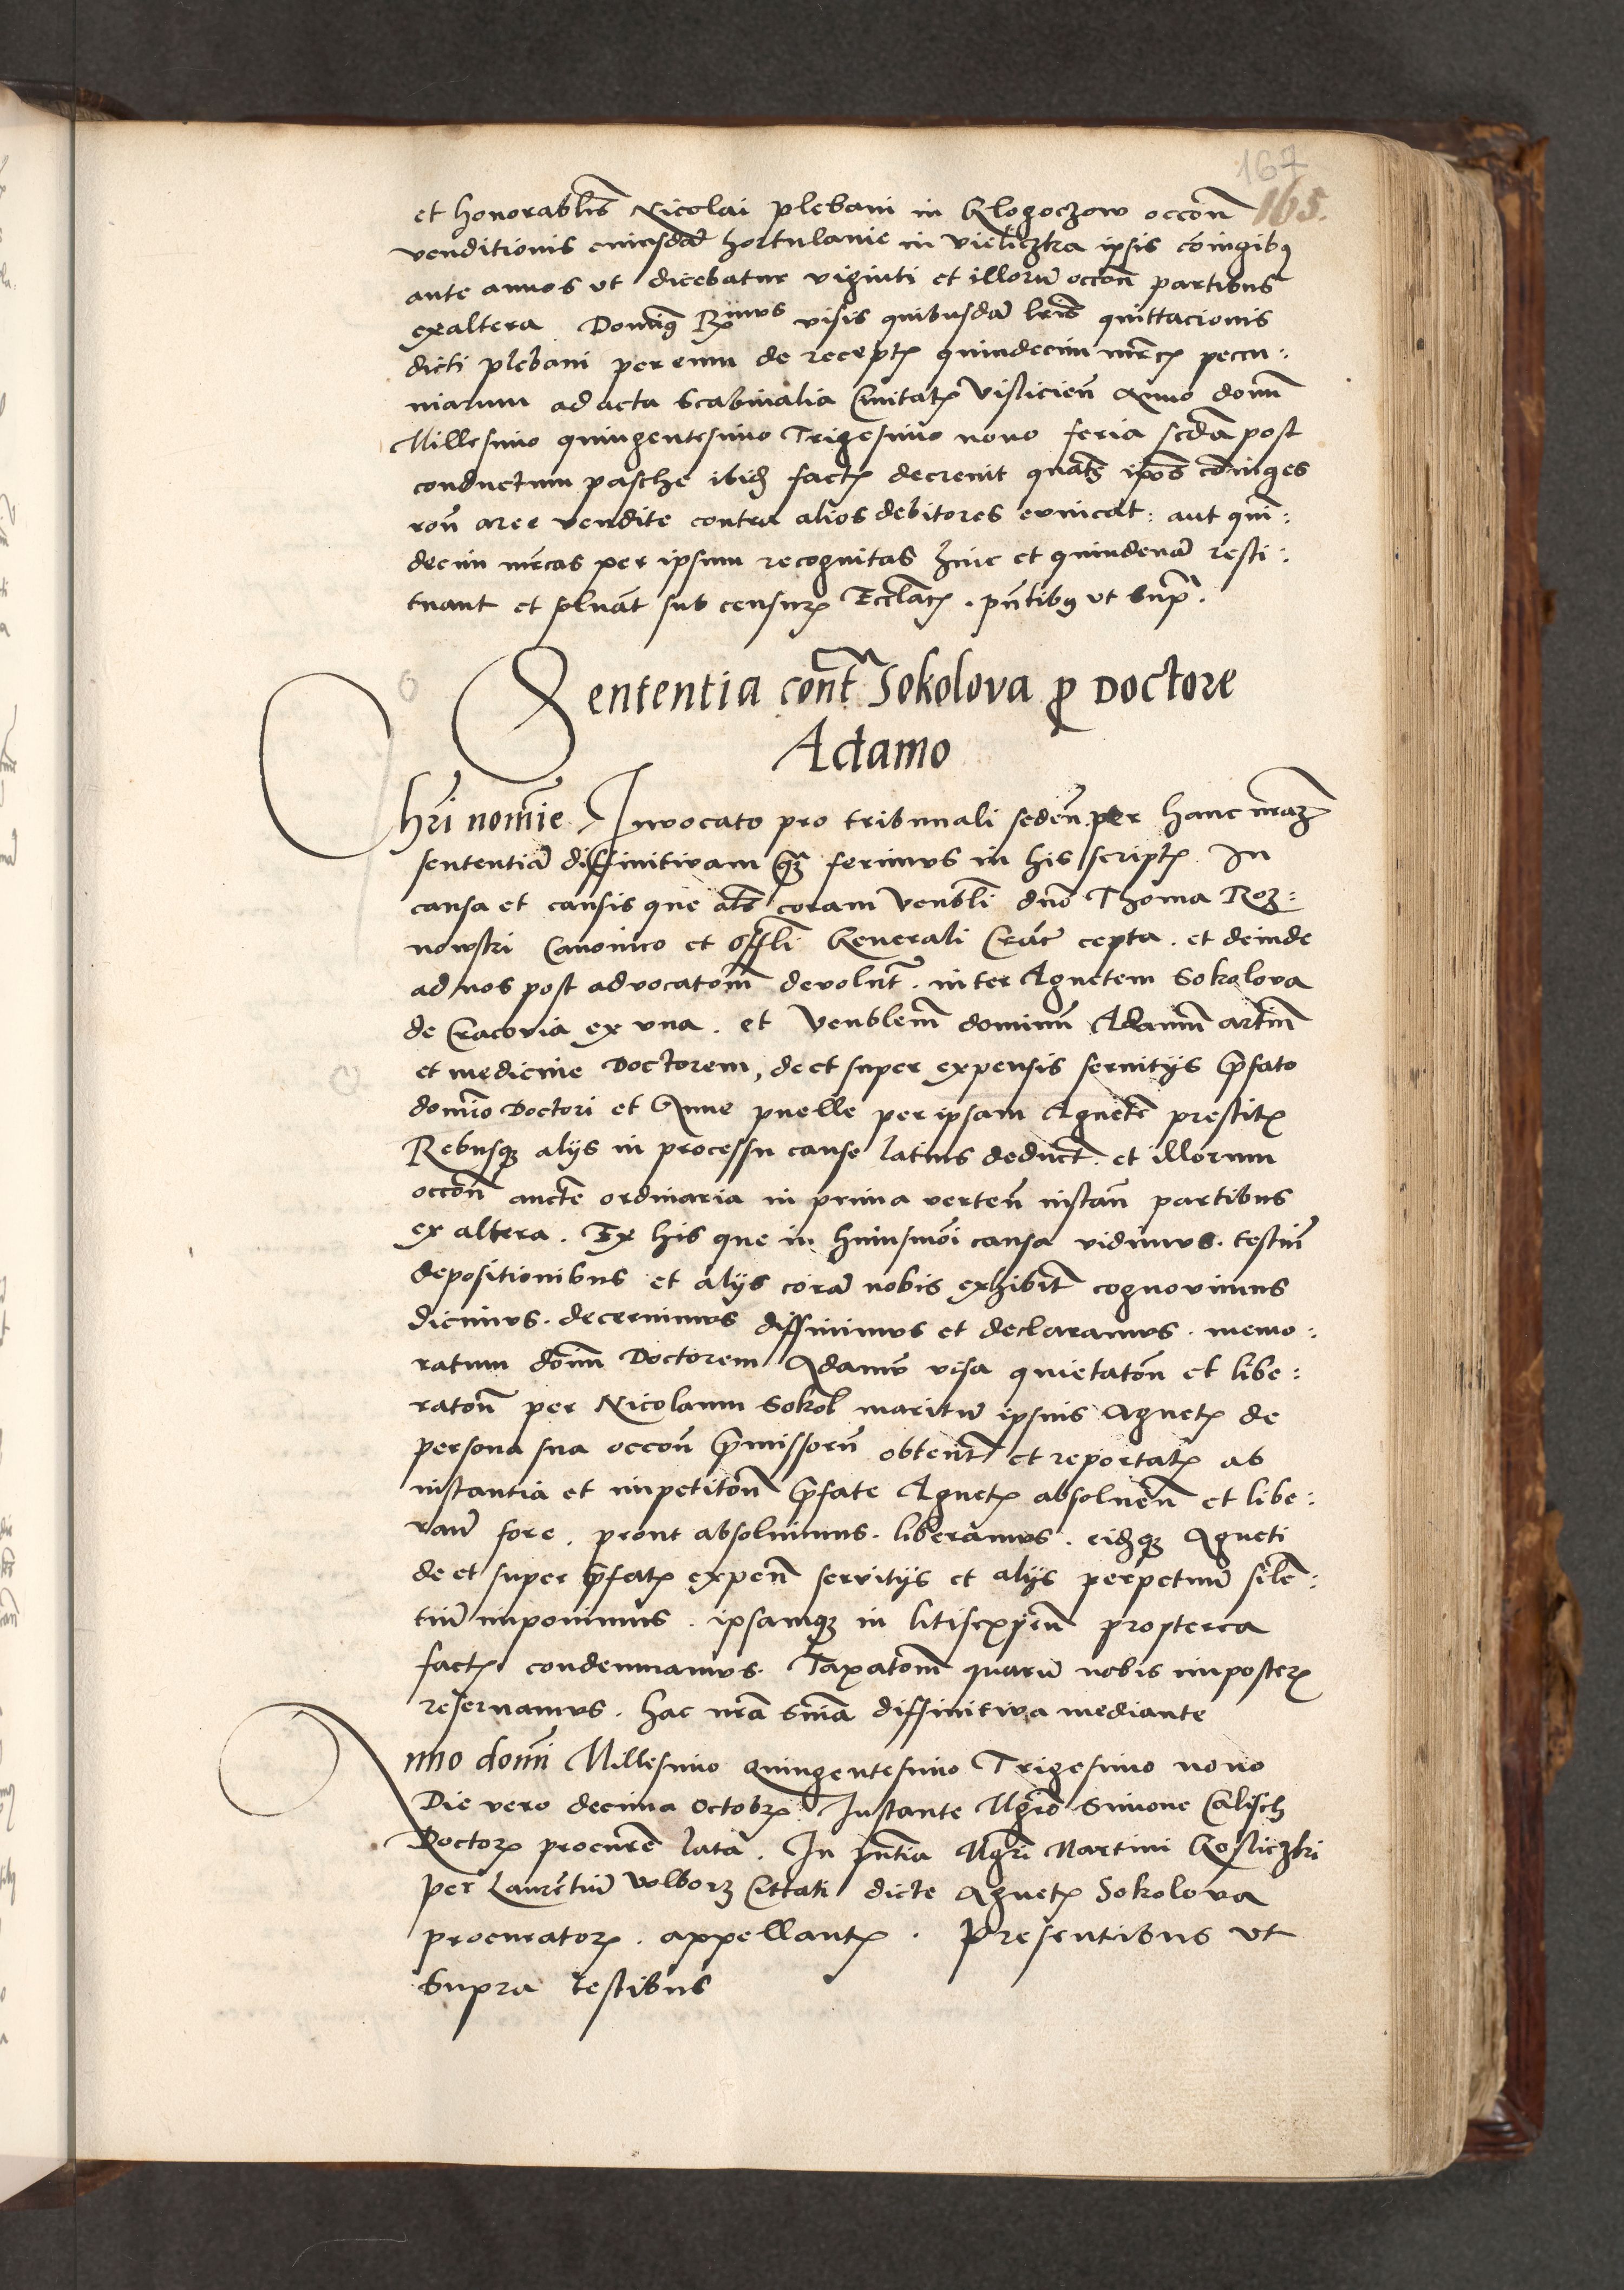 167
165.
et honorablis Nicolai plebani in Klogoczow occon̄
venditionis eiusdem hortulanie in vieliczka ipsis coniugib9
ante annos vt dicebatur viginti et illorū occon̄ partibus
exaltera Domin9 Rmus visis quibusdā lris quittacionis
dicti plebani per eum de recept quindecim mrc peccu:
niarum ad acta Scabinalia Civitat Vislicien̄ Anno domī
Millesimo quingentesimo Trigesimo nono feria scda post
conductum pasche ibid fact decrevit quat ipōs coniuges
ron̄ aree vendite contra alios debitores evincāt: aut quin:
decim mrcas per ipsum recognitas hinc et quindenā resti:
tuant et solvāt sub censur Ecclac . pn̄tib9 vt Supr .
Sententia cont Sokolova p Doctore
Adamo
Chri nomīe Invocato pro tribunali seden̄ per hanc nraz
sententiā diffinitivam quā ferimus in his script In
causa et causis que als coram Venbli dno Thoma Roz:
nowski Canonico et offli Generali Crac cepta . et deinde
ad nos post advocatom̄ devolut . inter Agnetem Sokolova
de Cracovia ex vna . et Venblem̄ dominū Adamū artiū
et medicine Doctorem, de et super expensis servitijs p̄fato
domīo Doctori et Anne puelle per ipsam Agnetē prestit
Rebusq alijs in processu cause latius deduct . et illorum
occon̄ aucte ordinaria in prima verten̄ instan̄ partibus
ex altera . Ex his que in huiusmōi causa vidimus . testiū
depositionibus et alijs corā nobis exhibit cognovimus
dicimus . decernimus diffinimus et declaramus . memo:
ratum dom̄ Doctorem Adamū visa quietaton̄ et libe:
raton̄ per Nicolaum Sokol maritū ipsius Agnet de
persona sua occon̄ p̄missorū obtent et reportat ab
instantia et impetiton̄ p̄fate Agnet absolven̄ et libe:
ran̄ fore . prout absolvimus . liberamus . eidq Agneti
de et super p̄fat expen̄ servitijs et alijs perpetuū silen:
tiū imponimus . ipsamq in litisexpen̄ propterea
fact condemnamus . Taxatom̄ quarū nobis imposter
reservamus . hac nrā Sniā diffinitiva mediante
Anno domī Millesimo quingentesimo Trigesimo nono
Die vero decima Octobr Instante Mgro Simone Calisch
Doctor procure lata . In pn̄tia Mgri Martini Kosliczki
per Laurentiū Wolborz Cittati dicte Agnet Sokolova
procurator . appellant . Presentibus vt
Supra testibus